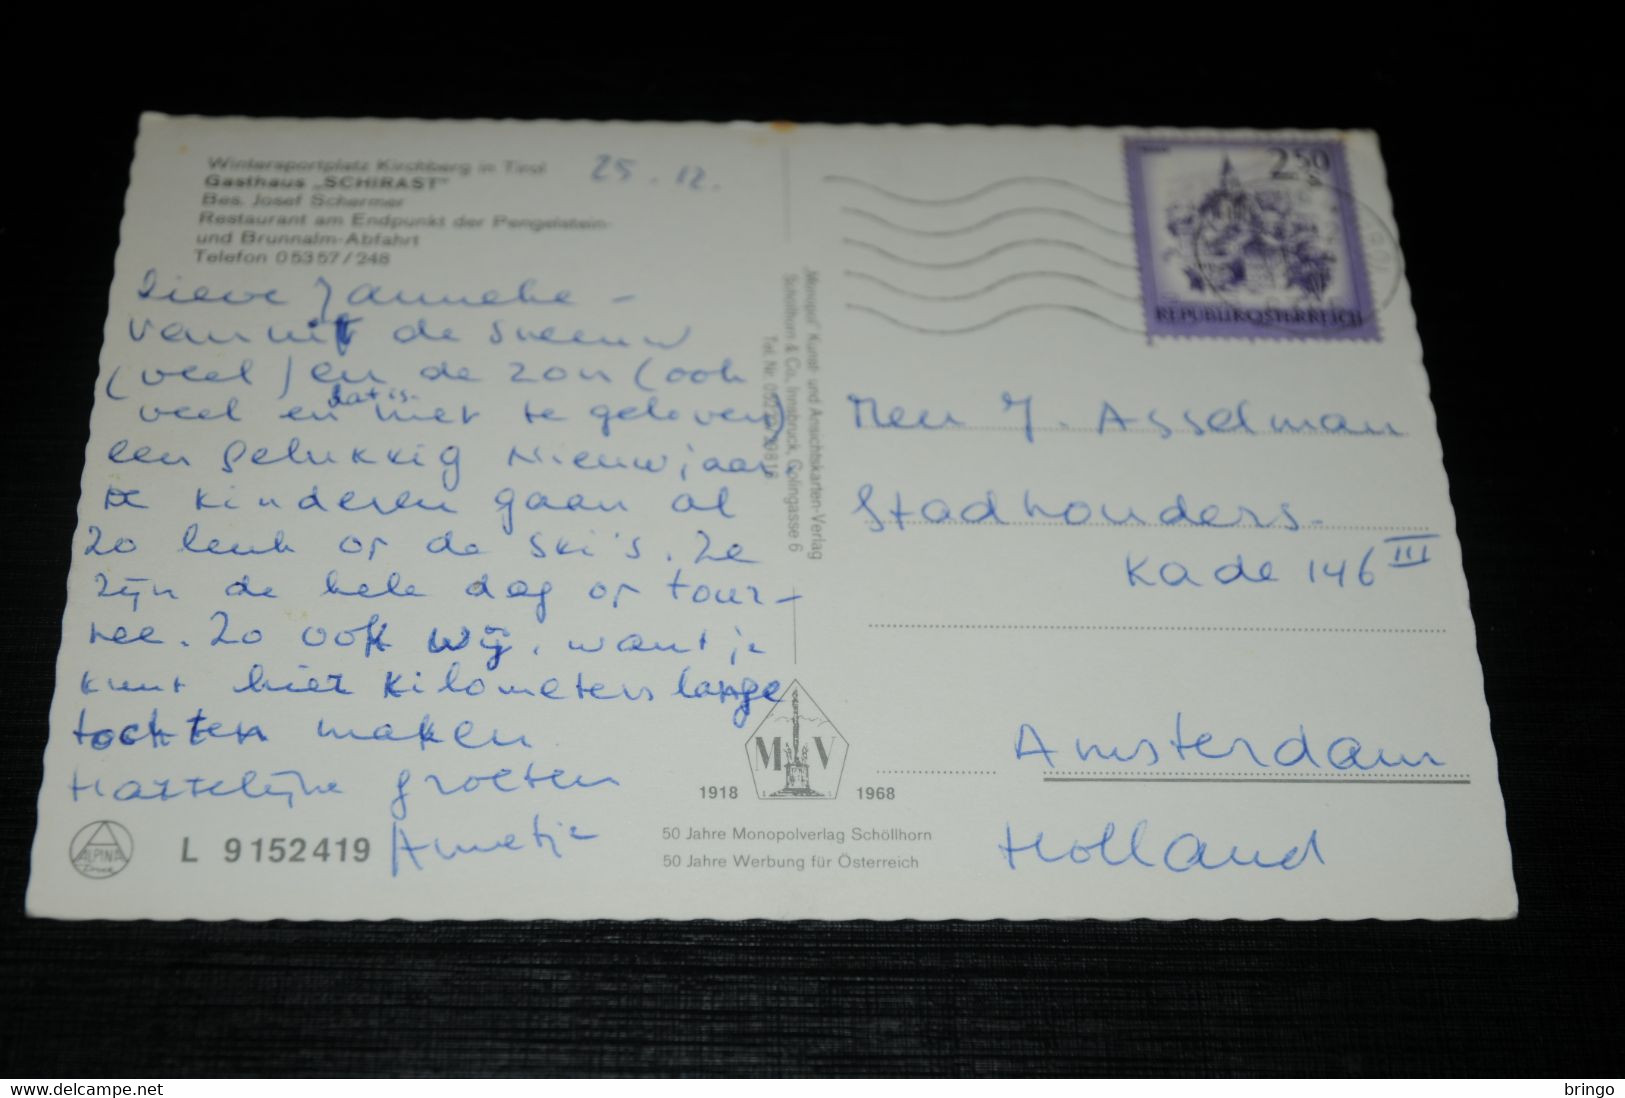 Wintersportplatz Kirchberg in Tirol
Gasthaus „SCHIRAST"
Bes. Josef Schermer
Restaurant am Endpunkt der Pengelstein-
und Brunnalm-Abfahrt
Telefon 05357/248
25.12.
Lieve Janneke –
vanuit de sneeuw
(veel) en de zon (ook
veel en dat is niet te geloven)
een gelukkig Nieuwjaar.
De kinderen gaan al
zo leuk op de ski's. Ze
zijn de hele dag op tour-
nee. Zo ook wij, want je
kunt hier kilometers lange
tochten maken
Hartelijke groeten
Annetje
ALPINA
L 9152419
„Monopol" Kunst- und Ansichtskarten-Verlag
Schöllhorn & Co., Innsbruck, Colingasse 6
M V
1918 1968
50 Jahre Monopolverlag Schöllhorn
50 Jahre Werbung für Österreich
2.50
REPUBLIK ÖSTERREICH
J. Asselman
Stadhouders-
kade 146 III
Amsterdam
Holland
www.delcampe.net
bringo